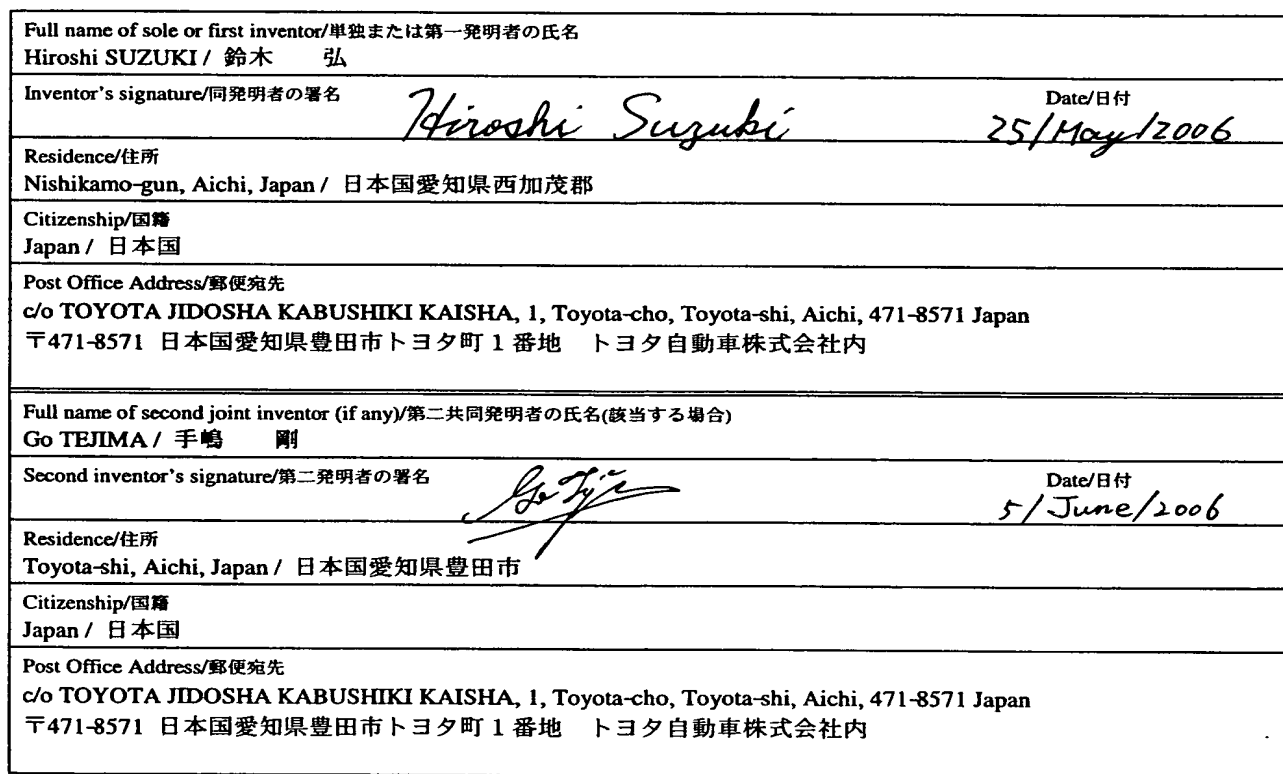 Full name of sole or first inventor/単独または第一発明者の氏名
Hiroshi SUZUKI / 鈴木　　弘
Inventor's signature/同発明者の署名
Hiroshi Suzuki
Date/日付
25/May/2006
Residence/住所
Nishikamo-gun, Aichi, Japan / 日本国愛知県西加茂郡
Citizenship/国籍
Japan / 日本国
Post Office Address/郵便宛先
c/o TOYOTA JIDOSHA KABUSHIKI KAISHA, 1, Toyota-cho, Toyota-shi, Aichi, 471-8571 Japan
〒471-8571 日本国愛知県豊田市トヨタ町１番地　トヨタ自動車株式会社内
Full name of second joint inventor (if any)/第二共同発明者の氏名(該当する場合)
Go TEJIMA / 手嶋　　剛
Second inventor's signature/第二発明者の署名
Date/日付
5/June/2006
Residence/住所
Toyota-shi, Aichi, Japan / 日本国愛知県豊田市
Citizenship/国籍
Japan / 日本国
Post Office Address/郵便宛先
c/o TOYOTA JIDOSHA KABUSHIKI KAISHA, 1, Toyota-cho, Toyota-shi, Aichi, 471-8571 Japan
〒471-8571 日本国愛知県豊田市トヨタ町１番地　トヨタ自動車株式会社内